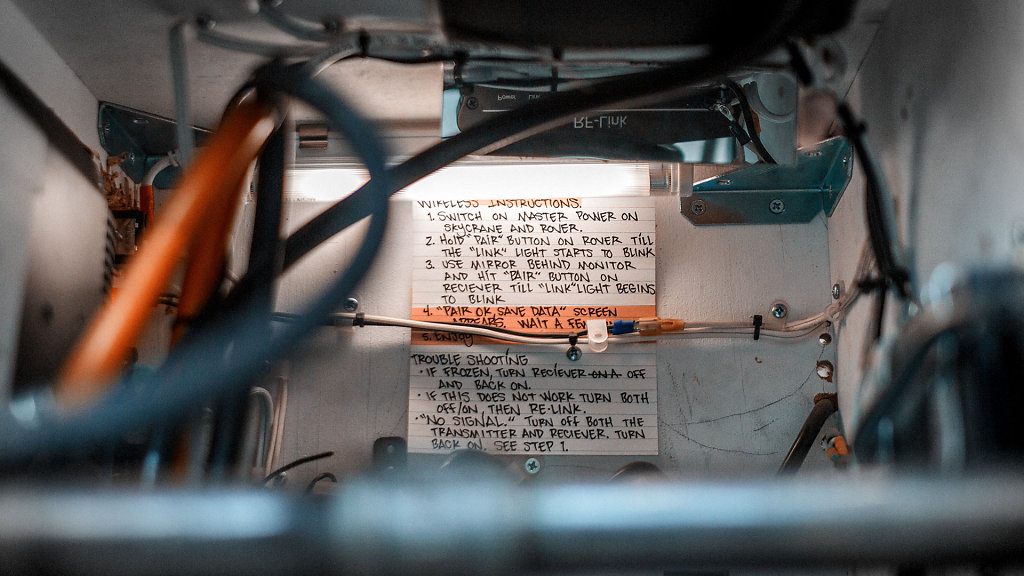 Power Link
RF-Link
WIRELESS INSTRUCTIONS.
1. SWITCH ON MASTER POWER ON
SKYCRANE AND ROVER.
2. HOLD "PAIR" BUTTON ON ROVER TILL
THE "LINK" LIGHT STARTS TO BLINK
3. USE MIRROR BEHIND MONITOR
AND HIT "PAIR" BUTTON ON
RECIEVER TILL "LINK" LIGHT BEGINS
TO BLINK
4. "PAIR OK, SAVE DATA" SCREEN
APPEARS. WAIT A FEW
5. ENJOY
TROUBLE SHOOTING
• IF FROZEN, TURN RECIEVER ON A OFF
AND BACK ON.
• IF THIS DOES NOT WORK TURN BOTH
OFF/ON, THEN RE-LINK.
• "NO SIGNAL." TURN OFF BOTH THE
TRANSMITTER AND RECIEVER. TURN
BACK ON. SEE STEP 1.